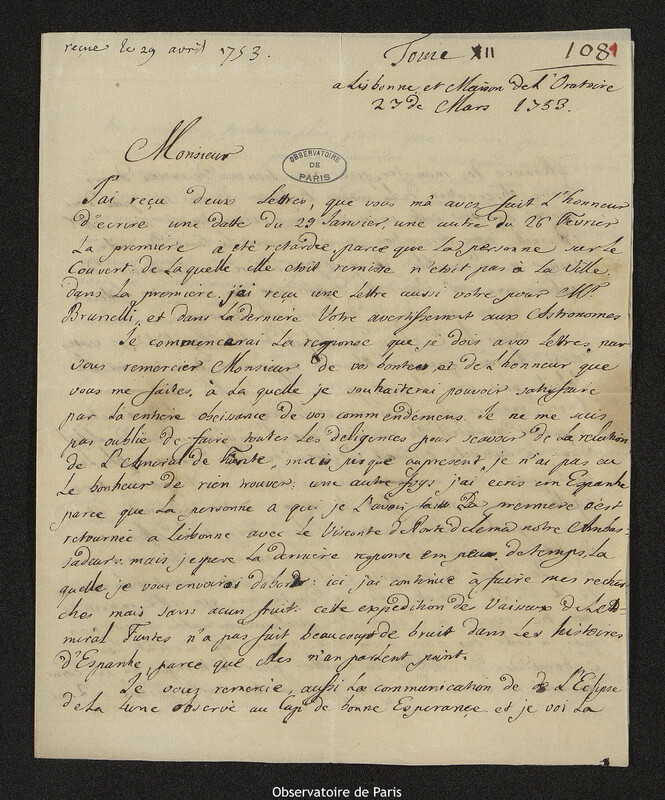 reçue le 29 avril 1753.
Tome XII
108
a Lisbonne, et Maison de L'Oratoire
27 de Mars 1753.
Monsieur
OBSERVATOIRE
DE
PARIS
J'ai reçu deux Lettres, que vous m'a avez fait L'honneur
d'ecrire une datte du 29 Janvier, une autre du 26 Fevrier
La premiere a eté retardée, parce que la personne sur le
Couvert de Laquelle elle etoit remise n'etoit pas à La Ville
dans La premiere j'ai reçu une Lettre aussi votre pour Mr.
Brunelli, et dans La derniere Votre avertissement aux Astronomes
Je commencerai La reponse que je dois a vos Lettres, par
vous remercier Monsieur de vos bontes, et de L'honneur que
vous me faites, à La quelle je souhaiterai pouvoir satisfaire
par La entiere obeissance de vos commendemens. Je ne me suis
pas oublié de faire toutes Les deligences pour scavoir de La relation
de L'Amiral de Fuente, mais jusque aupresent je n'ai pas eu
Le bonheur de rien trouver: une autre foys j'ai ecris em Espanhe
parce que La personne a qui je L'avois fait La premiere s'est
retournée a Lisbonne avec Le Visconte de Ponte de Lema notre Ambas-
sadeur: mais j'espere La derniere reponse em peu de temps, La
quelle je vous envoirai d'abord: ici j'ai continué à faire mes recher
ches mais sans acun fruit: cette expedition de Vaisaux de L'Ad-
miral Funtes n'a pas fait beaucoup de bruit dans Les histoires
d'Espanhe, parce que elles n'an parlent point.
Je vous remercie, aussi La communication de L'Eclipse
de La Lune observé au Cap de bonne Esperance et je voi La
Observatoire de Paris